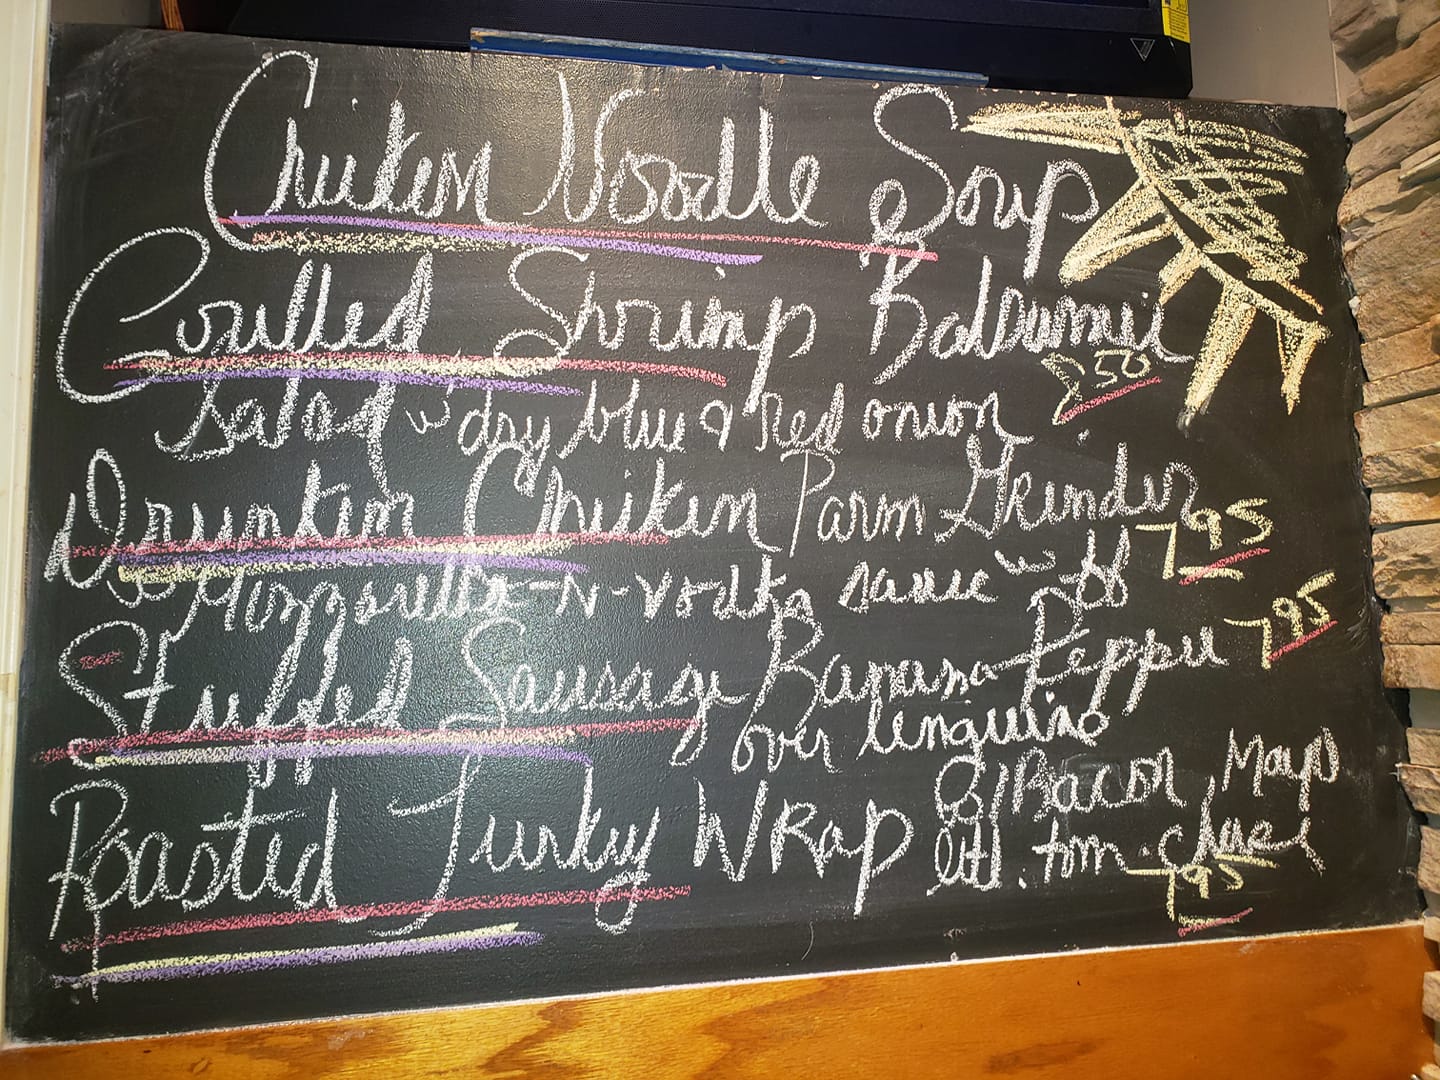 Chicken Noodle Soup
Grilled Shrimp Balsamic
Salad w/ dry blue & red onion 8 50
Drunken Chicken Parm Grinder
w Mozzarella-N-Vodka sauce w ff 7 95
Stuffed Sausage Banana Pepper 7 95
over linguine
Roasted Turkey WRap w/ Bacon, Mayo
lett. tom. cheese
7 95